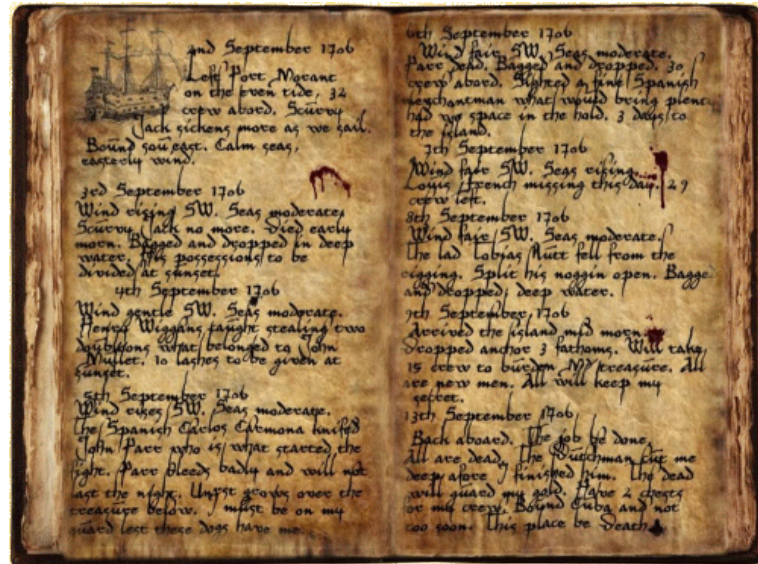 2nd September 1706
Left Port Morant
on the even tide, 32
crew abord. Scurvy
Jack sickens more as we sail.
Bound sou east. Calm seas,
easterly wind.
3rd September 1706
Wind rising SW. Seas moderate,
Scurvy Jack no more. Died early
morn. Bagged and dropped in deep
water. His possessions to be
divided at sunset.
4th September 1706
Wind gentle SW. Seas moderate.
Henry Wiggans caught stealing two
doubloons what belonged to John
Mullet. 10 lashes to be given at
sunset.
5th September 1706
Wind rises SW. Seas moderate.
The Spanish Carlos Carmona knifed
John Parr who is what started the
fight. Parr bleeds badly and will not
last the night. Unrest grows over the
treasure below. I must be on my
guard lest these dogs have me.
6th September 1706
Wind fair SW. Seas moderate.
Parr dead. Bagged and dropped. 30
crew abord. Sighted a fine Spanish
merchantman what would bring plenty
had we space in the hold. 3 days to
the island.
7th September 1706
Wind fair SW. Seas rising.
Louis French missing this day. 29
crew left.
8th September 1706
Wind fair SW. Seas moderate.
The lad Tobias Nutt fell from the
rigging. Split his noggin open. Bagged
and dropped, deep water.
9th September 1706
Arrived the island mid morn
dropped anchor 3 fathoms. Will take
15 crew to burden my treasure. All
are new men. All will keep my
secret.
13th September 1706
Back aboard. The job be done,
All are dead. The Dutchman cut me
deep afore I finished him. The dead
will guard my gold. Have 2 chests
or my crew. Bound Cuba and not
too soon. This place be Death